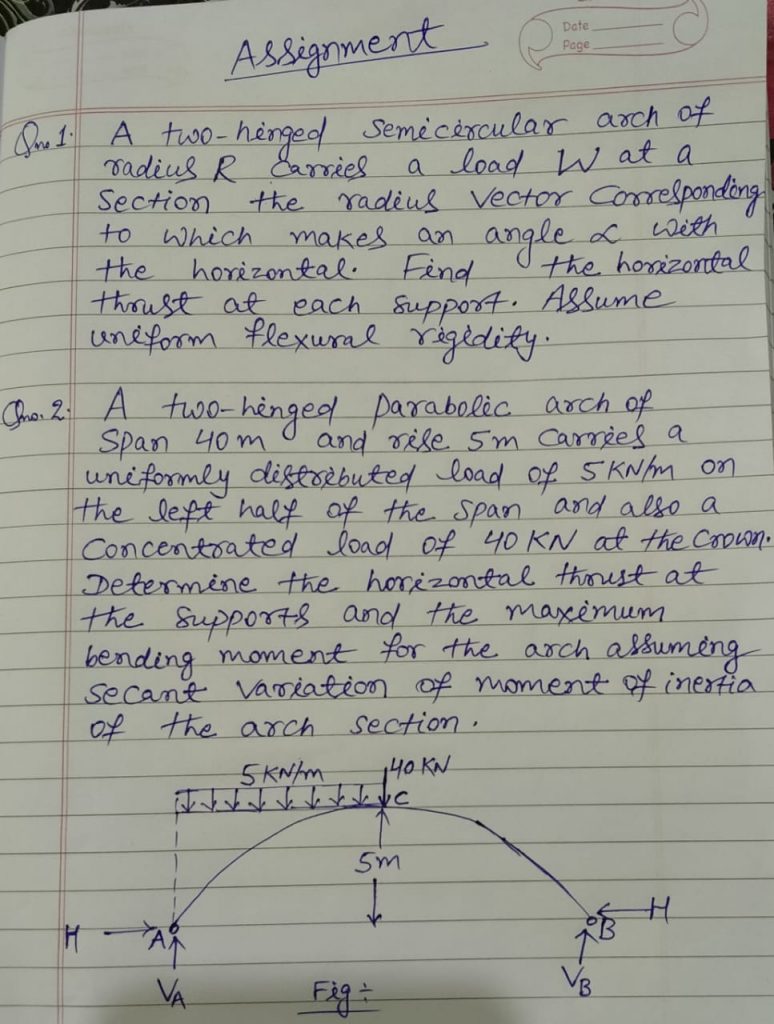 Date
Page
Assignment
Qno.1. A two-hinged semicircular arch of
radius R carries a load W at a
Section the radius vector corresponding
to which makes an angle α with
the horizontal. Find the horizontal
thrust at each support. Assume
uniform flexural rigidity.
Qno.2. A two-hinged parabolic arch of
Span 40 m and rise 5m carries a
uniformly distributed load of 5 KN/m on
the left half of the span and also a
concentrated load of 40 KN at the crown.
Determine the horizontal thrust at
the supports and the maximum
bending moment for the arch assuming
secant variation of moment of inertia
of the arch section.
5 KN/m 40 KN
C
5m
H A B H
VA Fig ÷ VB